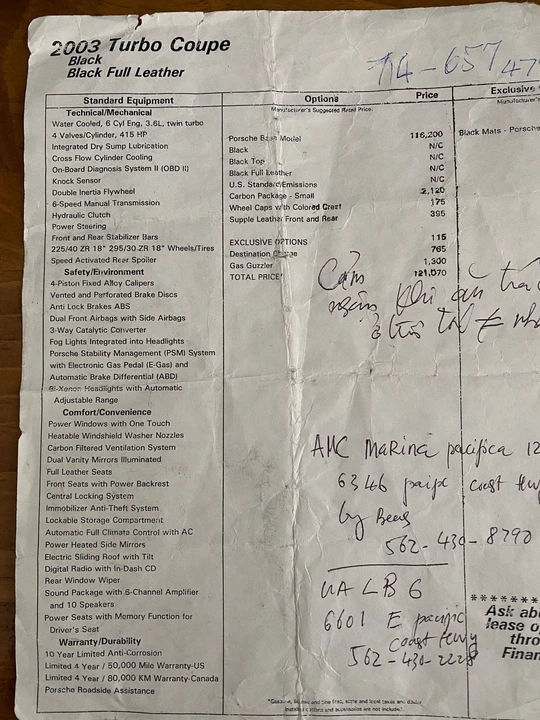 2003 Turbo Coupe
Black
Black Full Leather
714-657 47
Standard Equipment
Technical/Mechanical
Water Cooled, 6 Cyl Eng, 3.6L, twin turbo
4 Valves/Cylinder, 415 HP
Integrated Dry Sump Lubrication
Cross Flow Cylinder Cooling
On-Board Diagnosis System II (OBD II)
Knock Sensor
Double Inertia Flywheel
6-Speed Manual Transmission
Hydraulic Clutch
Power Steering
Front and Rear Stabilizer Bars
225/40 ZR 18" 295/30 ZR 18" Wheels/Tires
Speed Activated Rear Spoiler
Safety/Environment
4-Piston Fixed Alloy Calipers
Vented and Perforated Brake Discs
Anti Lock Brakes ABS
Dual Front Airbags with Side Airbags
3-Way Catalytic Converter
Fog Lights Integrated into Headlights
Porsche Stability Management (PSM) System
with Electronic Gas Pedal (E-Gas) and
Automatic Brake Differential (ABD)
Bi-Xenon Headlights with Automatic
Adjustable Range
Comfort/Convenience
Power Windows with One Touch
Heatable Windshield Washer Nozzles
Carbon Filtered Ventilation System
Dual Vanity Mirrors Illuminated
Full Leather Seats
Front Seats with Power Backrest
Central Locking System
Immobilizer Anti-Theft System
Lockable Storage Compartment
Automatic Full Climate Control with AC
Power Heated Side Mirrors
Electric Sliding Roof with Tilt
Digital Radio with In-Dash CD
Rear Window Wiper
Sound Package with 6-Channel Amplifier
and 10 Speakers
Power Seats with Memory Function for
Driver's Seat
Warranty/Durability
10 Year Limited Anti-Corrosion
Limited 4 Year / 50,000 Mile Warranty-US
Limited 4 Year / 80,000 KM Warranty-Canada
Porsche Roadside Assistance
Options Price
Manufacturer's Suggested Retail Price:
Porsche Base Model 116,200
Black N/C
Black Top N/C
Black Full Leather N/C
U.S. Standard Emissions N/C
Carbon Package - Small 2,120
Wheel Caps with Colored Crest 175
Supple Leather Front and Rear 395
EXCLUSIVE OPTIONS 115
Destination Charge 765
Gas Guzzler 1,300
TOTAL PRICE* 121,070
Exclusive
Manufacturer's
Black Mats - Porsche
Cấm
ngậm khi ăn
AMC Marina pacifica 12
6346 coast Hwy
by Bees
562-430-8790
UA LB 6
6601 E pacific
coast Hwy
562-430-2228
*******
Ask abo
lease o
thro
Finan